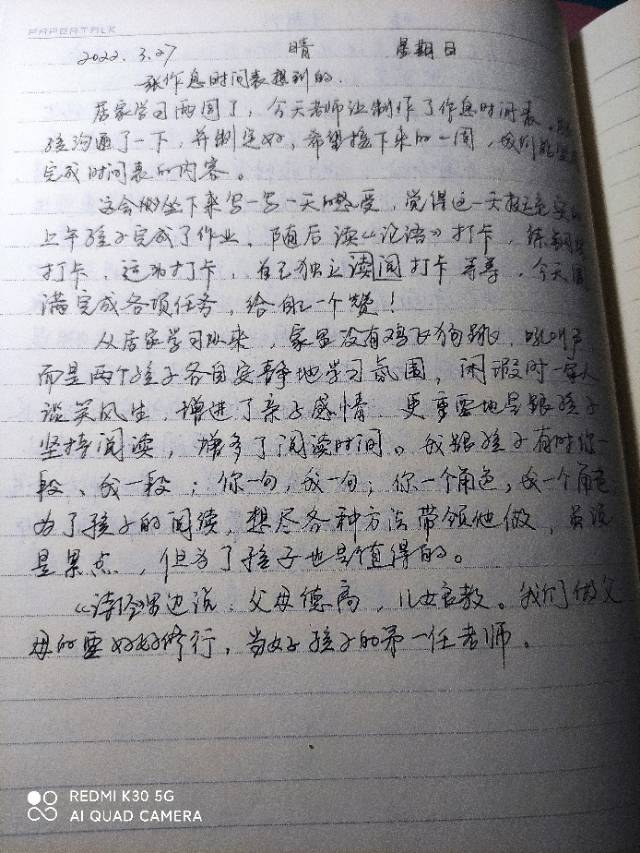 PAPERTALK
2022.3.27 晴 星期日
一张作息时间表想到的.
居家学习两周了，今天老师让制作了作息时间表。
孩沟通了一下，并制定好，希望接下来的一周，我们能
完成时间表的内容。
这会儿坐下来写一写一天的感受，觉得这一天挺充实的
上午孩子完成了作业、随后读《论语》打卡，练
打卡，运动打卡，自己独立读阅打卡等等，今天圆
满完成各项任务，给自己一个赞！
从居家学习以来，家里没有鸡飞狗跳，吼叫声
而是两个孩子各自安静地学习氛围，闲暇时一家人
谈笑风生，增进了亲子感情，更重要地是跟孩子
坚持阅读，增多了阅读时间。我跟孩子有时你一
段、我一段；你一句，我一句；你一个角色，我一个角色
为了孩子的阅读，想尽各种方法带领他做，虽说
是累点，但为了孩子也是值得的。
《诗经里边说：父母德高，儿女良教。我们做父
母的要好好修行，当好孩子的第一任老师。
REDMI K30 5G
AI QUAD CAMERA